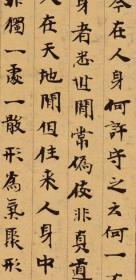 今在人身何許守之云何一
身者悉世間常偽伎非真道
入在天地間但往來人身中
非獨一處一散形為氣聚形